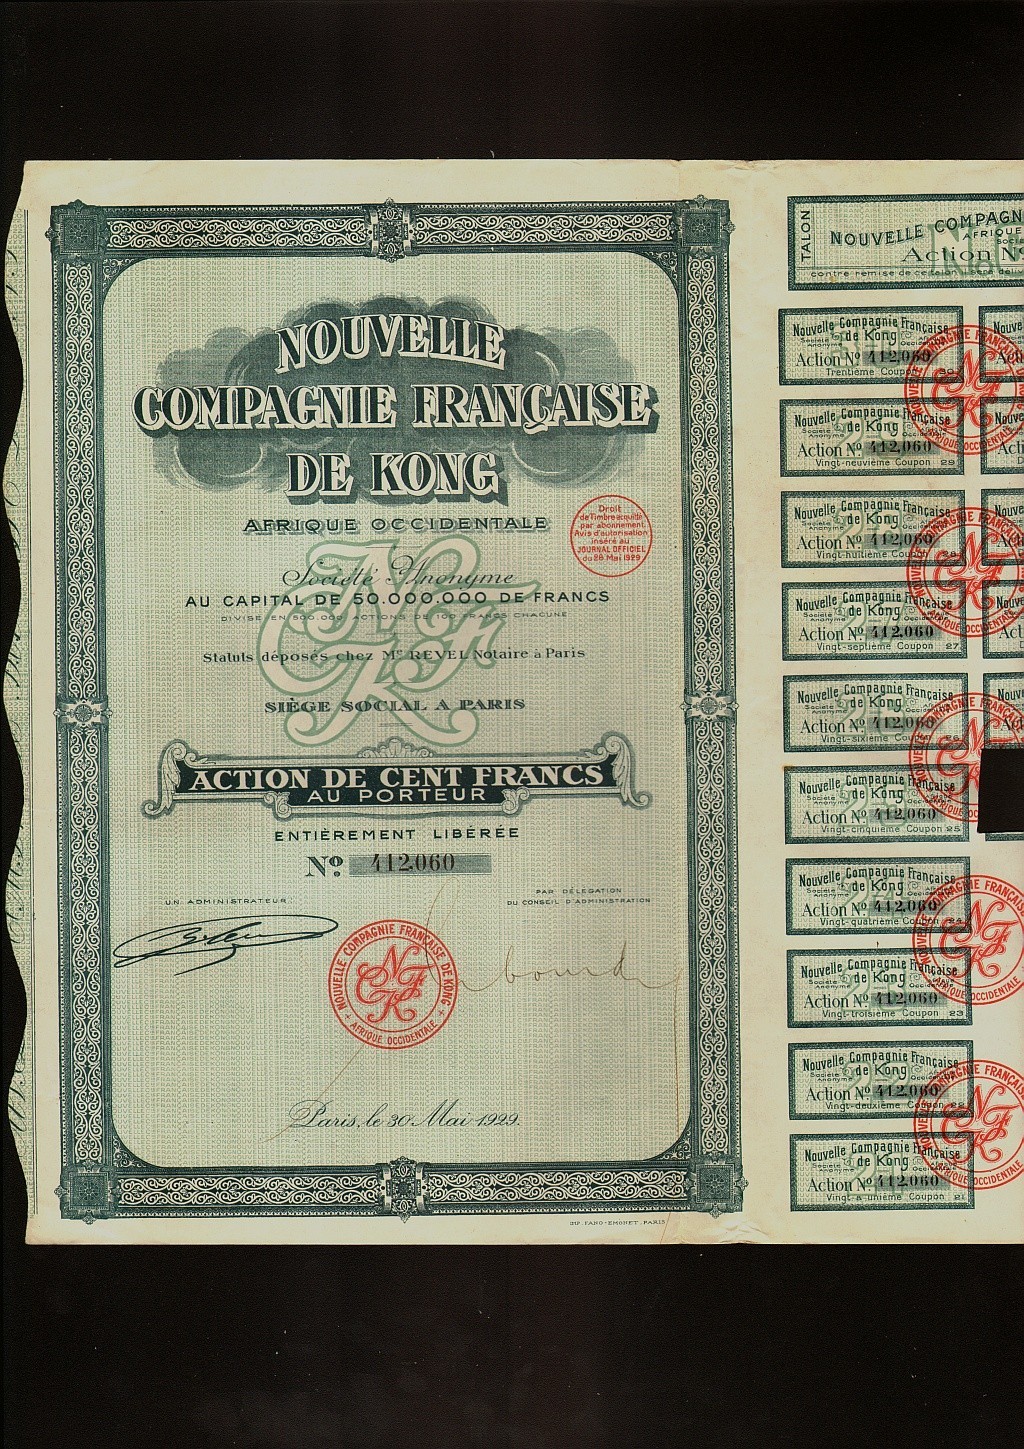 NOUVELLE
COMPAGNIE FRANÇAISE
DE KONG
AFRIQUE OCCIDENTALE
Société Anonyme
AU CAPITAL DE 50.000.000 DE FRANCS
DIVISÉ EN 500.000 ACTIONS DE 100 FRANCS CHACUNE
Statuts déposés chez Me REVEL Notaire à Paris
SIÈGE SOCIAL A PARIS
Droit
de Timbre acquitté
par abonnement
Avis d'autorisation
inséré au
JOURNAL OFFICIEL
du 28 Mai 1929
ACTION DE CENT FRANCS
AU PORTEUR
ENTIÈREMENT LIBÉRÉE
No. 412.060
UN ADMINISTRATEUR
PAR DÉLÉGATION
DU CONSEIL D'ADMINISTRATION
NOUVELLE COMPAGNIE FRANÇAISE DE KONG
NCFK
AFRIQUE OCCIDENTALE
Paris, le 30 Mai 1929.
IMP. FANO-EMONET, PARIS
TALON
NOUVELLE COMPAGN
AFRIQUE
Socié
Action No
contre remise de ce talon il sera déliv
Nouvelle Compagnie Française
de Kong
Société Anonyme
Action No. 412,060
Trentième Coupon 30
Nouvelle Compagnie Française
de Kong
Société Anonyme
Action No. 412,060
Vingt-neuvième Coupon 29
Nouvelle Compagnie Française
de Kong
Société Anonyme
Action No. 412,060
Vingt-huitième Coupon 28
Nouvelle Compagnie Française
de Kong
Société Anonyme
Action No. 412,060
Vingt-septième Coupon 27
Nouvelle Compagnie Française
de Kong
Société Anonyme
Action No. 412,060
Vingt-sixième Coupon 26
Nouvelle Compagnie Française
de Kong
Société Anonyme
Action No. 412,060
Vingt-cinquième Coupon 25
Nouvelle Compagnie Française
de Kong
Société Anonyme
Action No. 412,060
Vingt-quatrième Coupon 24
Nouvelle Compagnie Française
de Kong
Société Anonyme
Action No. 412,060
Vingt-troisième Coupon 23
Nouvelle Compagnie Française
de Kong
Société Anonyme
Action No. 412,060
Vingt-deuxième Coupon 22
Nouvelle Compagnie Française
de Kong
Société Anonyme
Action No. 412,060
Vingt-à-unième Coupon 21